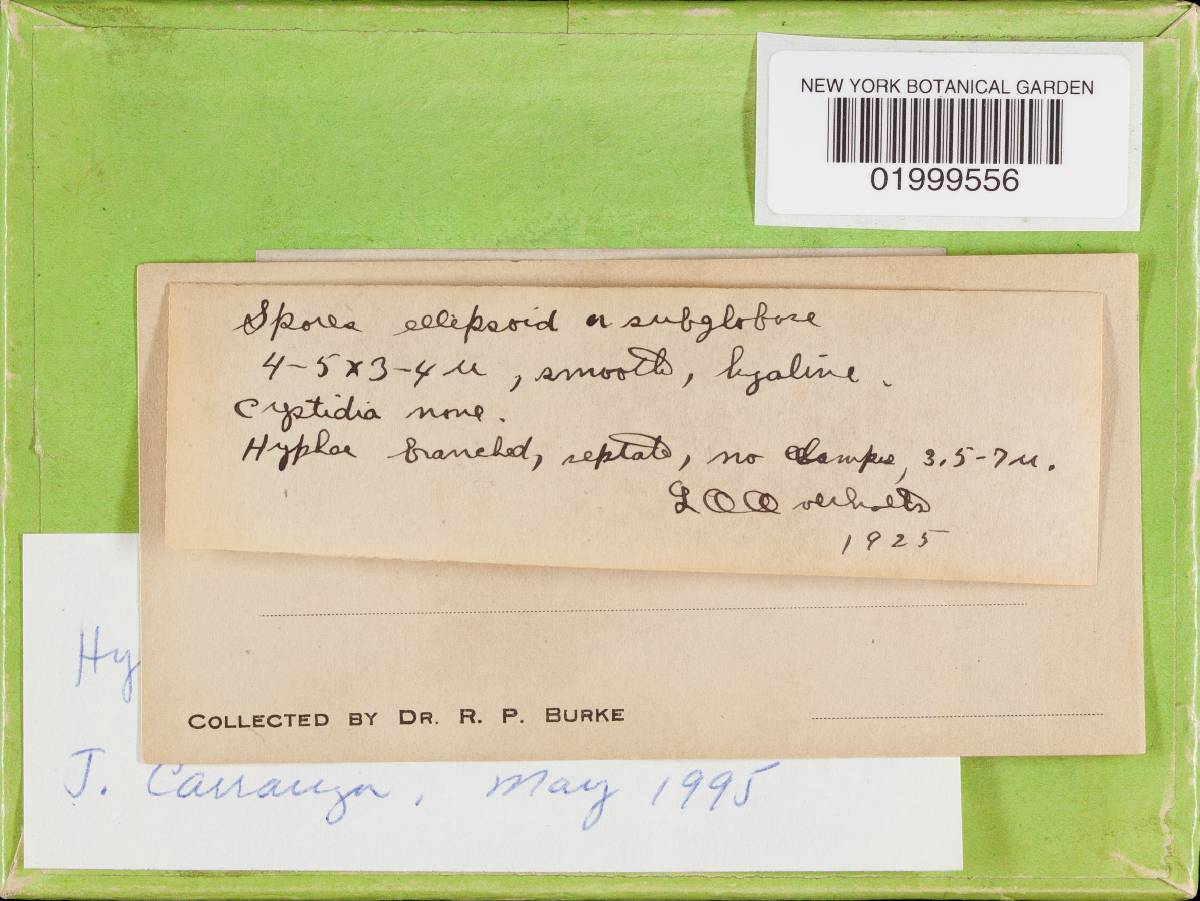 NEW YORK BOTANICAL GARDEN
01999556
Spores ellipsoid or subglobose
4-5x3-4 u, smooth, hyaline.
Cystidia none.
Hyphae branched, septate, no clamps, 3.5-7 u.
L O Overholts
1925
Hy
COLLECTED BY DR. R. P. BURKE
J. Carranza, May 1995